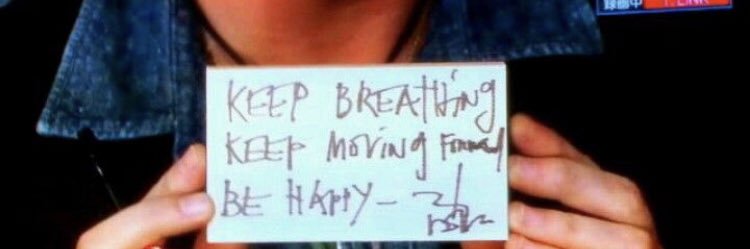 録画中
KEEP BREATHING
KEEP MOVING FORWARD
BE HAPPY –